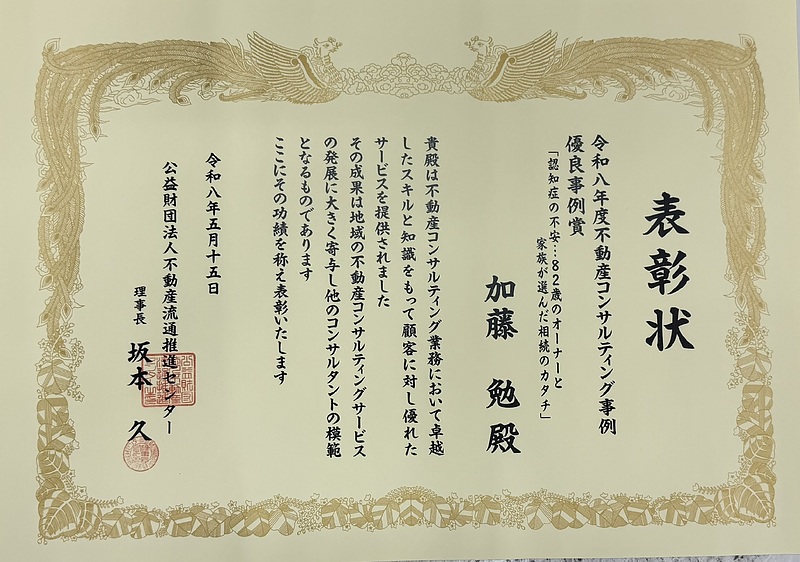 表彰状
令和八年度不動産コンサルティング事例
優良事例賞
「認知症の不安…82歳のオーナーと
家族が選んだ相続のカタチ」
加藤 勉 殿
貴殿は不動産コンサルティング業務において卓越
したスキルと知識をもって顧客に対し優れた
サービスを提供されました
その成果は地域の不動産コンサルティングサービス
の発展に大きく寄与し他のコンサルタントの模範
となるものであります
ここにその功績を称え表彰いたします
令和八年五月十五日
公益財団法人不動産流通推進センター
理事長 坂本 久